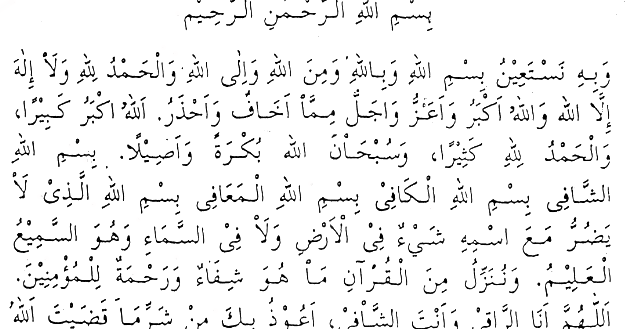 بِسْمِ اللهِ الـرَّحْـمٰنِ الـرَّحِيْمِ
وَبِـهِ نَسْـتَعِيْنُ بِسْـمِ اللهِ وَبِاللهِ وَمِنَ اللهِ وَاِلٰى اللهِ وَالْحَمْدُ لِلهِ وَلَاْ اِلٰهَ
اِلَّا الله وَاللهُ اَكْبَرُ وَاَعَزُّ وَاجَلُّ مِمَّاْ اَخَافُ وَاَحْذَرُ. اَللهُ اكْبَرُ كَـبِيْرًا،
وَالْحَمْدُ لِلهِ كَثِيْرًا، وَسُبْحَاْنَ الله بُكْرَةً وَاَصِيْلًا. بِسْمِ اللهِ
الشَّافِى بِسْمِ اللهِ الْـكَافِىْ بِسْمِ اللهِ الْـمَعَافِى بِسْمِ اللهِ الَّـذِىْ لَاْ
يَضُرُّ مَعَ اسْمِهِ شَىْءٌ فِىْ الْاَرْضِ وَلَاْ فِىْ السَّمَاءِ وَهُوَ السَّمِيْعُ
الْـعَلِيْـمُ. وَنُـنَزِّلُ مِنَ الْـقُرْآنِ مَاْ هُـوَ شِـفَاءٌ وَرَحْمَةٌ لِلْمُؤْمِنِيْنَ.
اَللّٰهُمَّ اَنَا الرَّاقِىْ وَاَنْتَ الشَّاْفِىْ، اَعُوْذُ بِـكَ مِنْ شَرِّمَاْ قَضَيْتَ اَللهُ